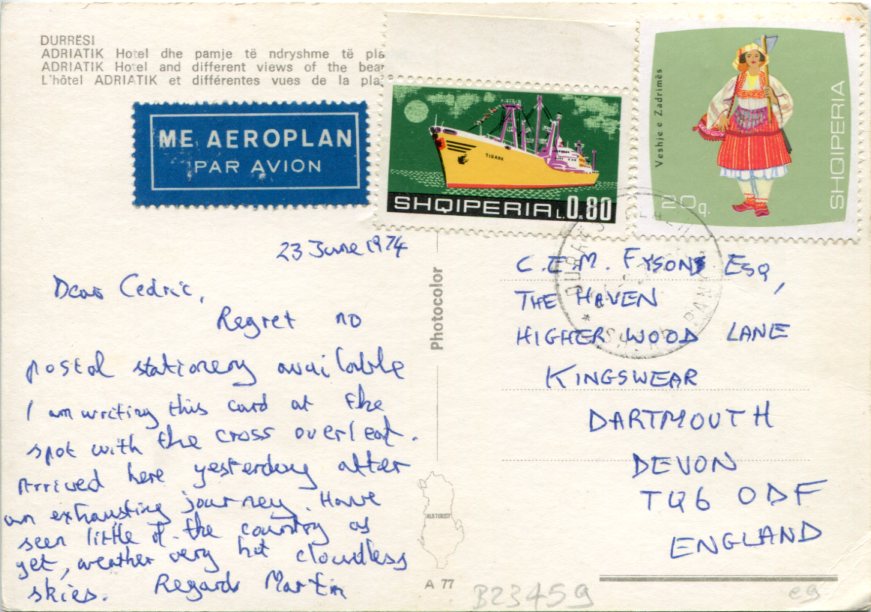 DURRËSI
ADRIATIK Hotel dhe pamje të ndryshme të
ADRIATIK Hotel and different views of the
L'hôtel ADRIATIK et différentes vues de la
ME AEROPLAN
PAR AVION
TIRANA
SHQIPERIA L.0.80
Veshje e Zadrimës
20q.
SHQIPERIA
23 June 1974
Dear Cedric,
Regret no
postal stationery available
I am writing this card at the
spot with the cross overleaf.
Arrived here yesterday after
an exhausting journey. Have
seen little of the country as
yet, weather very hot cloudless
skies. Regards Martin
Photocolor
ALBTURIST
A 77
C.E.M. FYSON ESQ,
THE HAVEN
HIGHER WOOD LANE
KINGSWEAR
DARTMOUTH
DEVON
TQ6 0DF
ENGLAND
B23459
eg